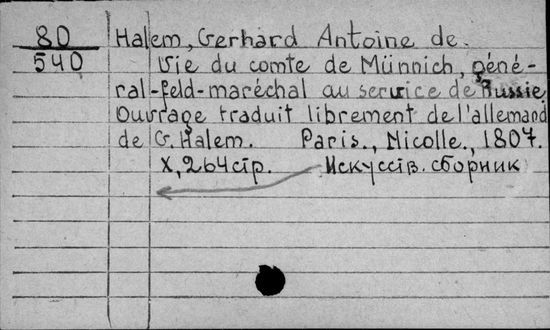 80 Halem, Gerhard Antoine de.
540 Vie du comte de Münnich, géné-
ral-feld-maréchal au service de Russie.
Ouvrage traduit librement de l'allemand
de G. Halem. Paris., Nicolle., 1807.
X, 264 стр. Искусств. сборник